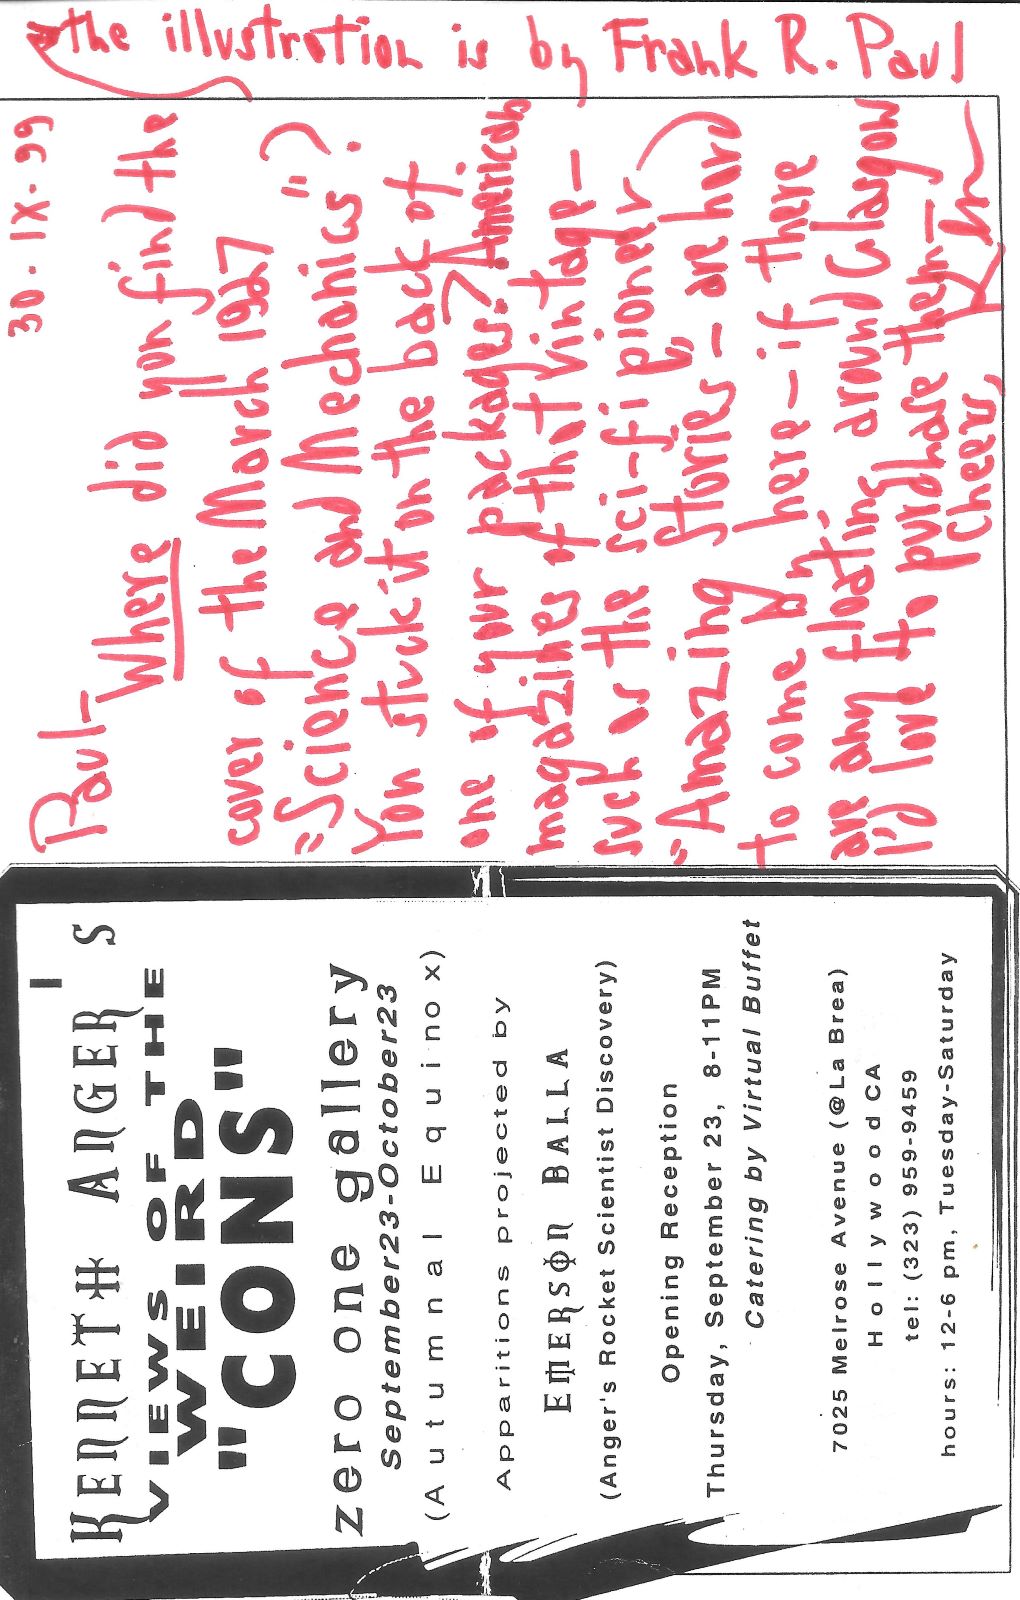 the illustration is by Frank R. Paul
30 · IX · 99
Paul—
Where did you find the
cover of the March 1927
"Science and Mechanics"?
You stuck it on the back of
one of your packages. American
magazines of that vintage—
such as the sci-fi pioneer
"Amazing Stories"— are hard
to come by here — if there
are any floating around Glasgow
I'd love to purchase them—
Cheers,
KENNETH ANGER'S
VIEWS OF THE
WEIRD
"CONS"
zero one gallery
September23-October23
(Autumnal Equinox)
Apparitions projected by
EMERSON BALLA
(Anger's Rocket Scientist Discovery)
Opening Reception
Thursday, September 23, 8-11PM
Catering by Virtual Buffet
7025 Melrose Avenue (@La Brea)
Hollywood CA
tel: (323) 959-9459
hours: 12-6 pm, Tuesday-Saturday